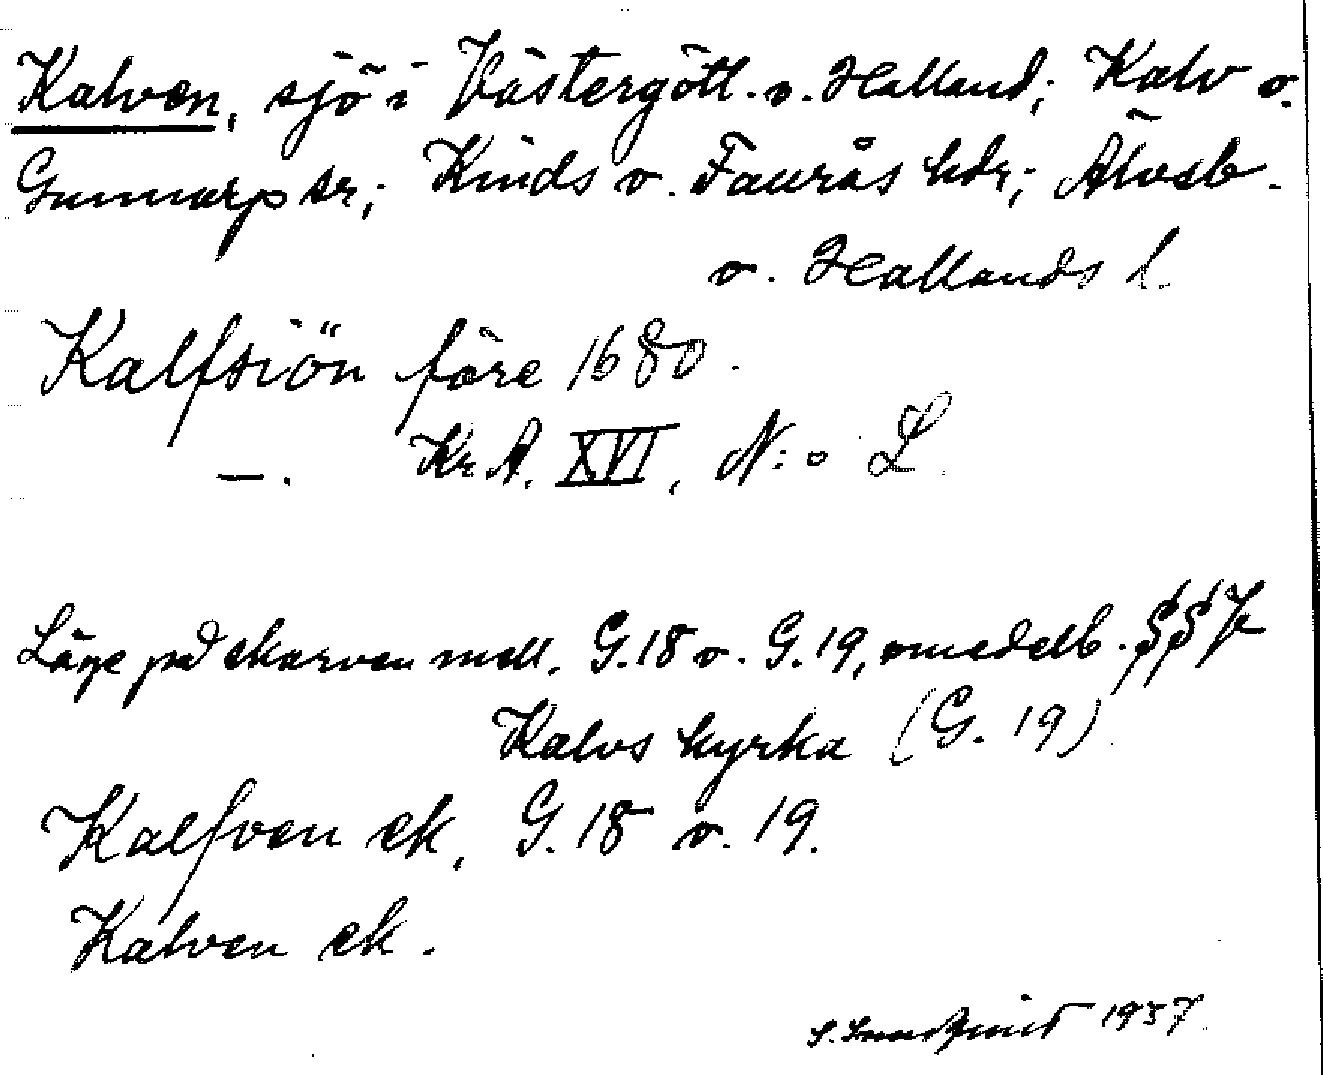 Kalven, sjö i Västergötl. o. Halland; Kalv o.
Gunnarp sr; Kinds o. Faurås hdr; Älvsb.
o. Hallands l.
Kalfsiön före 1680.
—. Kr.A. XVI, N:o L.
Läge på skarven mell. G.18 o. G.19, omedelb.
Kalvs kyrka (G. 19)
Kalfven ek, G. 18 o. 19.
Kalven ek.
1937